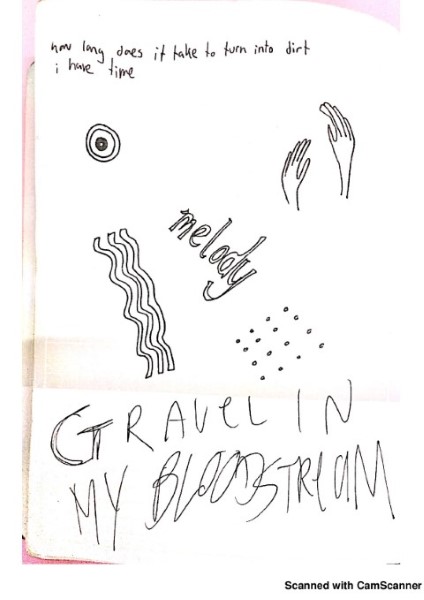 how long does it take to turn into dirt
i have time
melody
GRAVEL IN
MY BLOODSTREAM
Scanned with CamScanner